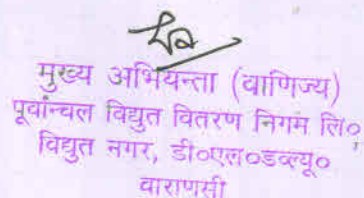 मुख्य अभियन्ता (वाणिज्य)
पूर्वान्चल विद्युत वितरण निगम लि०
विद्युत नगर, डी०एल०डब्ल्यू०
वाराणसी